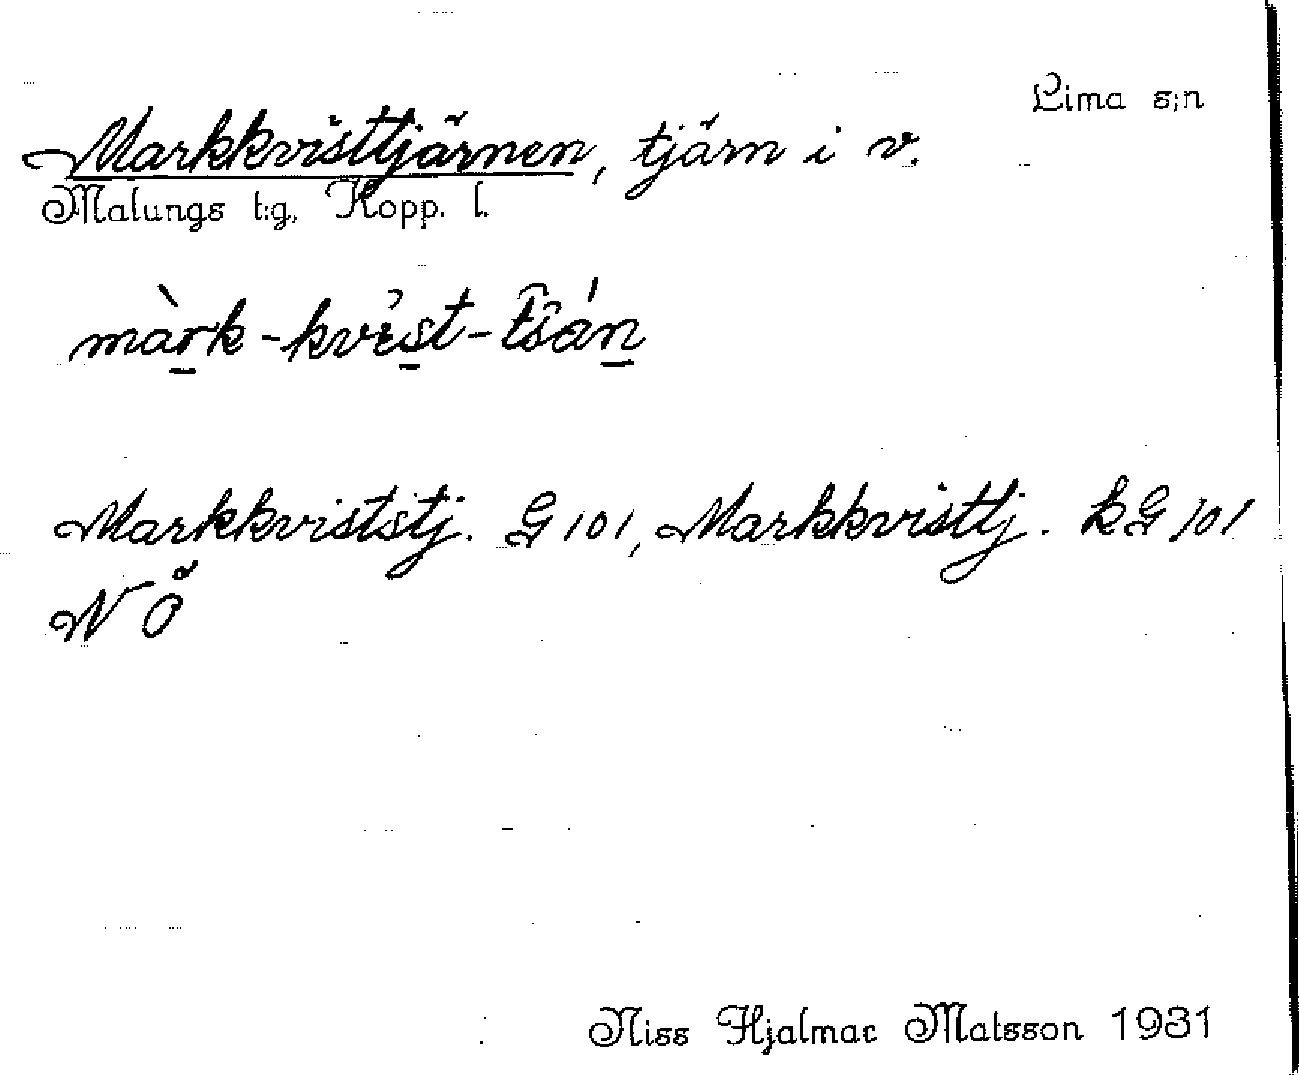 Lima s:n
Markkvisttjärnen, tjärn i v.
Malungs t:g., Kopp. l.
màrk-kvist-tsán
Markkviststj. G 101, Markkvisttj. kG 101
NÖ
Niss Hjalmar Matsson 1931